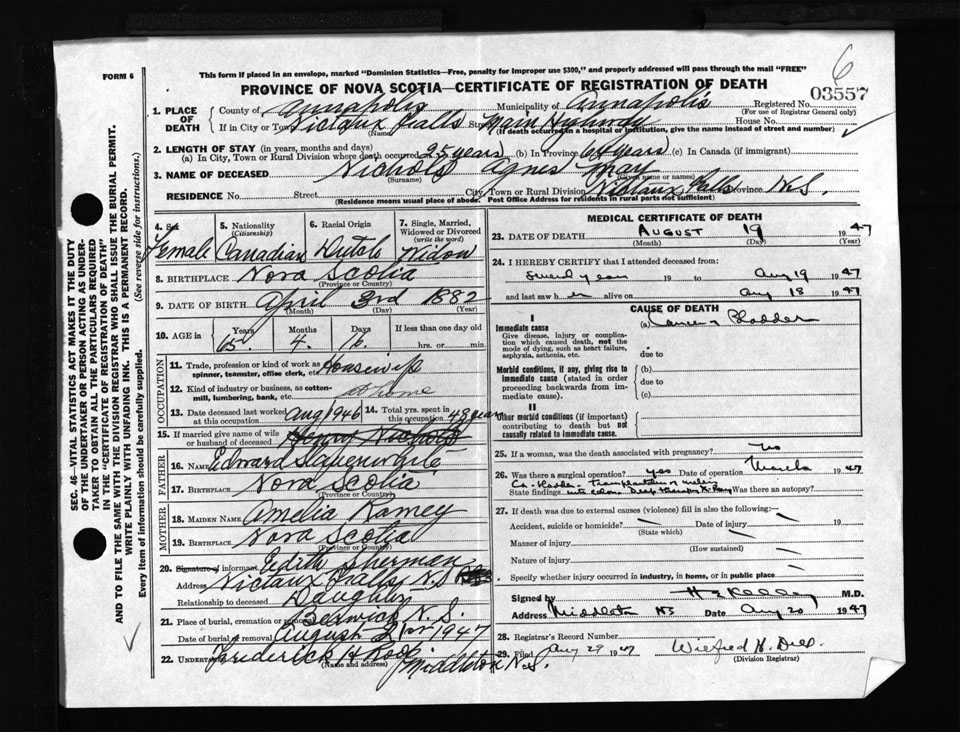 6
FORM 6
This form if placed in an envelope, marked "Dominion Statistics—Free, penalty for improper use $300," and properly addressed will pass through the mail "FREE"
PROVINCE OF NOVA SCOTIA—CERTIFICATE OF REGISTRATION OF DEATH
03557
1. PLACE OF DEATH County of Annapolis Municipality of Annapolis Registered No.
(For use of Registrar General only)
If in City or Town Nictaux Falls Street Main Highway House No.
(Name) (If death occurred in a hospital or institution, give the name instead of street and number)
2. LENGTH OF STAY (in years, months and days)
(a) In City, Town or Rural Division where death occurred 25 years (b) In Province 64 years (c) In Canada (if immigrant)
3. NAME OF DECEASED Nichols Agnes May
(Surname) (Given name or names)
RESIDENCE No. Street City, Town or Rural Division Nictaux Falls Province N.S.
(Residence means usual place of abode. Post Office Address for residents in rural parts not sufficient)
4. Sex 5. Nationality (Citizenship) 6. Racial Origin 7. Single, Married, Widowed or Divorced (write the word)
Female Canadian Dutch Widow
8. BIRTHPLACE Nova Scotia
(Province or Country)
9. DATE OF BIRTH April 3rd 1882
(Month) (Day) (Year)
10. AGE in Years Months Days If less than one day old
65 4 16 hrs. or min.
OCCUPATION
11. Trade, profession or kind of work as spinner, teamster, office clerk, etc. Housewife
12. Kind of industry or business, as cotton-mill, lumbering, bank, etc. At home
13. Date deceased last worked at this occupation Aug 1946 14. Total yrs. spent in this occupation 48 years
15. If married give name of wife or husband of deceased Henry Nichols
FATHER
16. NAME Edward Slauenwhite
17. BIRTHPLACE Nova Scotia
(Province or Country)
MOTHER
18. MAIDEN NAME Amelia Ramey
19. BIRTHPLACE Nova Scotia
(Province or Country)
20. Signature of informant Edith Sherman
Address Nictaux Falls N.S.
Relationship to deceased Daughter
21. Place of burial, cremation or removal Berwick N.S.
Date of burial or removal August 21st 1947
22. UNDERTAKER Frederick H Roop Middleton N.S.
(Name and address)
MEDICAL CERTIFICATE OF DEATH
23. DATE OF DEATH AUGUST 19 1947
(Month) (Day) (Year)
24. I HEREBY CERTIFY that I attended deceased from:
several years 19 to Aug 19 1947
and last saw her alive on Aug 18 1947
CAUSE OF DEATH
I
Immediate cause (a) Cancer of Bladder
Give disease, injury or complication which caused death, not the mode of dying, such as heart failure, asphyxia, asthenia, etc.
due to
Morbid conditions, if any, giving rise to immediate cause (stated in order proceeding backwards from immediate cause).
(b)
due to
(c)
II
Other morbid conditions (if important) contributing to death but not causally related to immediate cause.
25. If a woman, was the death associated with pregnancy? No
26. Was there a surgical operation? yes Date of operation March 1947
State findings Ca. Bladder - transplantation of ureters into colon. Deep therapy X-Ray Was there an autopsy?
27. If death was due to external causes (violence) fill in also the following:—
Accident, suicide or homicide? Date of injury 19
(State which)
Manner of injury
(How sustained)
Nature of injury
Specify whether injury occurred in industry, in home, or in public place
Signed by H E Kelley M.D.
Address Middleton NS Date Aug 20 1947
28. Registrar's Record Number
29. Filed Aug 29 1947 Wilfred H. Dill
(Division Registrar)
SEC. 46—VITAL STATISTICS ACT MAKES IT THE DUTY
OF THE UNDERTAKER OR PERSON ACTING AS UNDER-
TAKER TO OBTAIN ALL THE PARTICULARS REQUIRED
IN THE "CERTIFICATE OF REGISTRATION OF DEATH"
AND TO FILE THE SAME WITH THE DIVISION REGISTRAR WHO SHALL ISSUE THE BURIAL PERMIT.
WRITE PLAINLY WITH UNFADING INK. THIS IS A PERMANENT RECORD.
Every item of information should be carefully supplied. (See reverse side for instructions.)